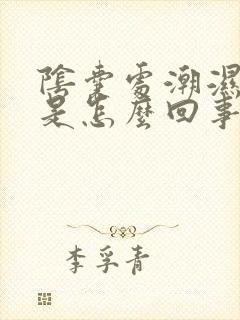 陰囊處潮濕
是怎麼回事
李孚青